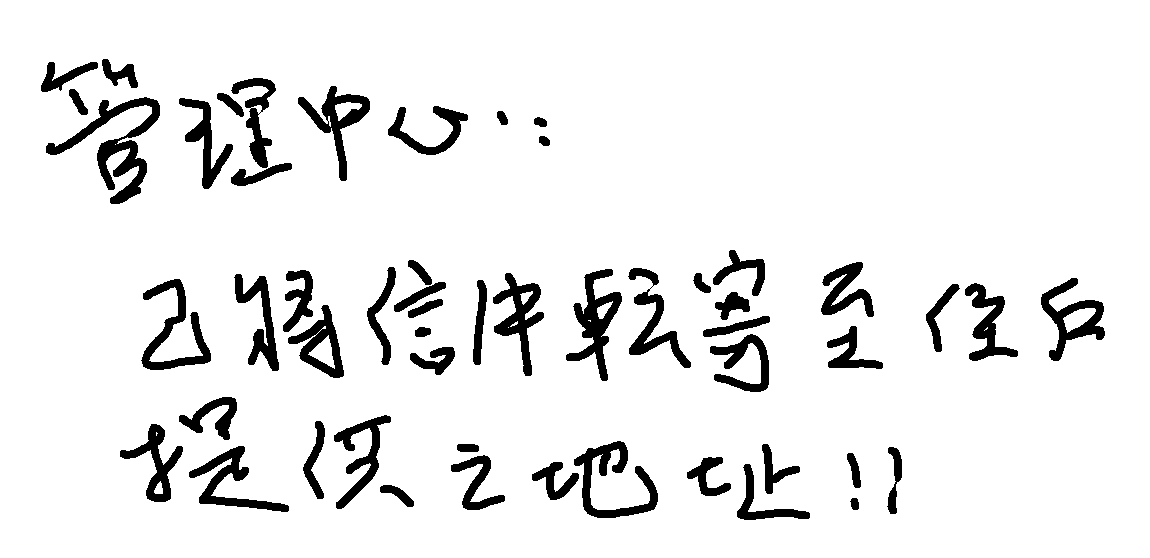 管理中心:
已將信件転寄至住戶
提供之地址!!